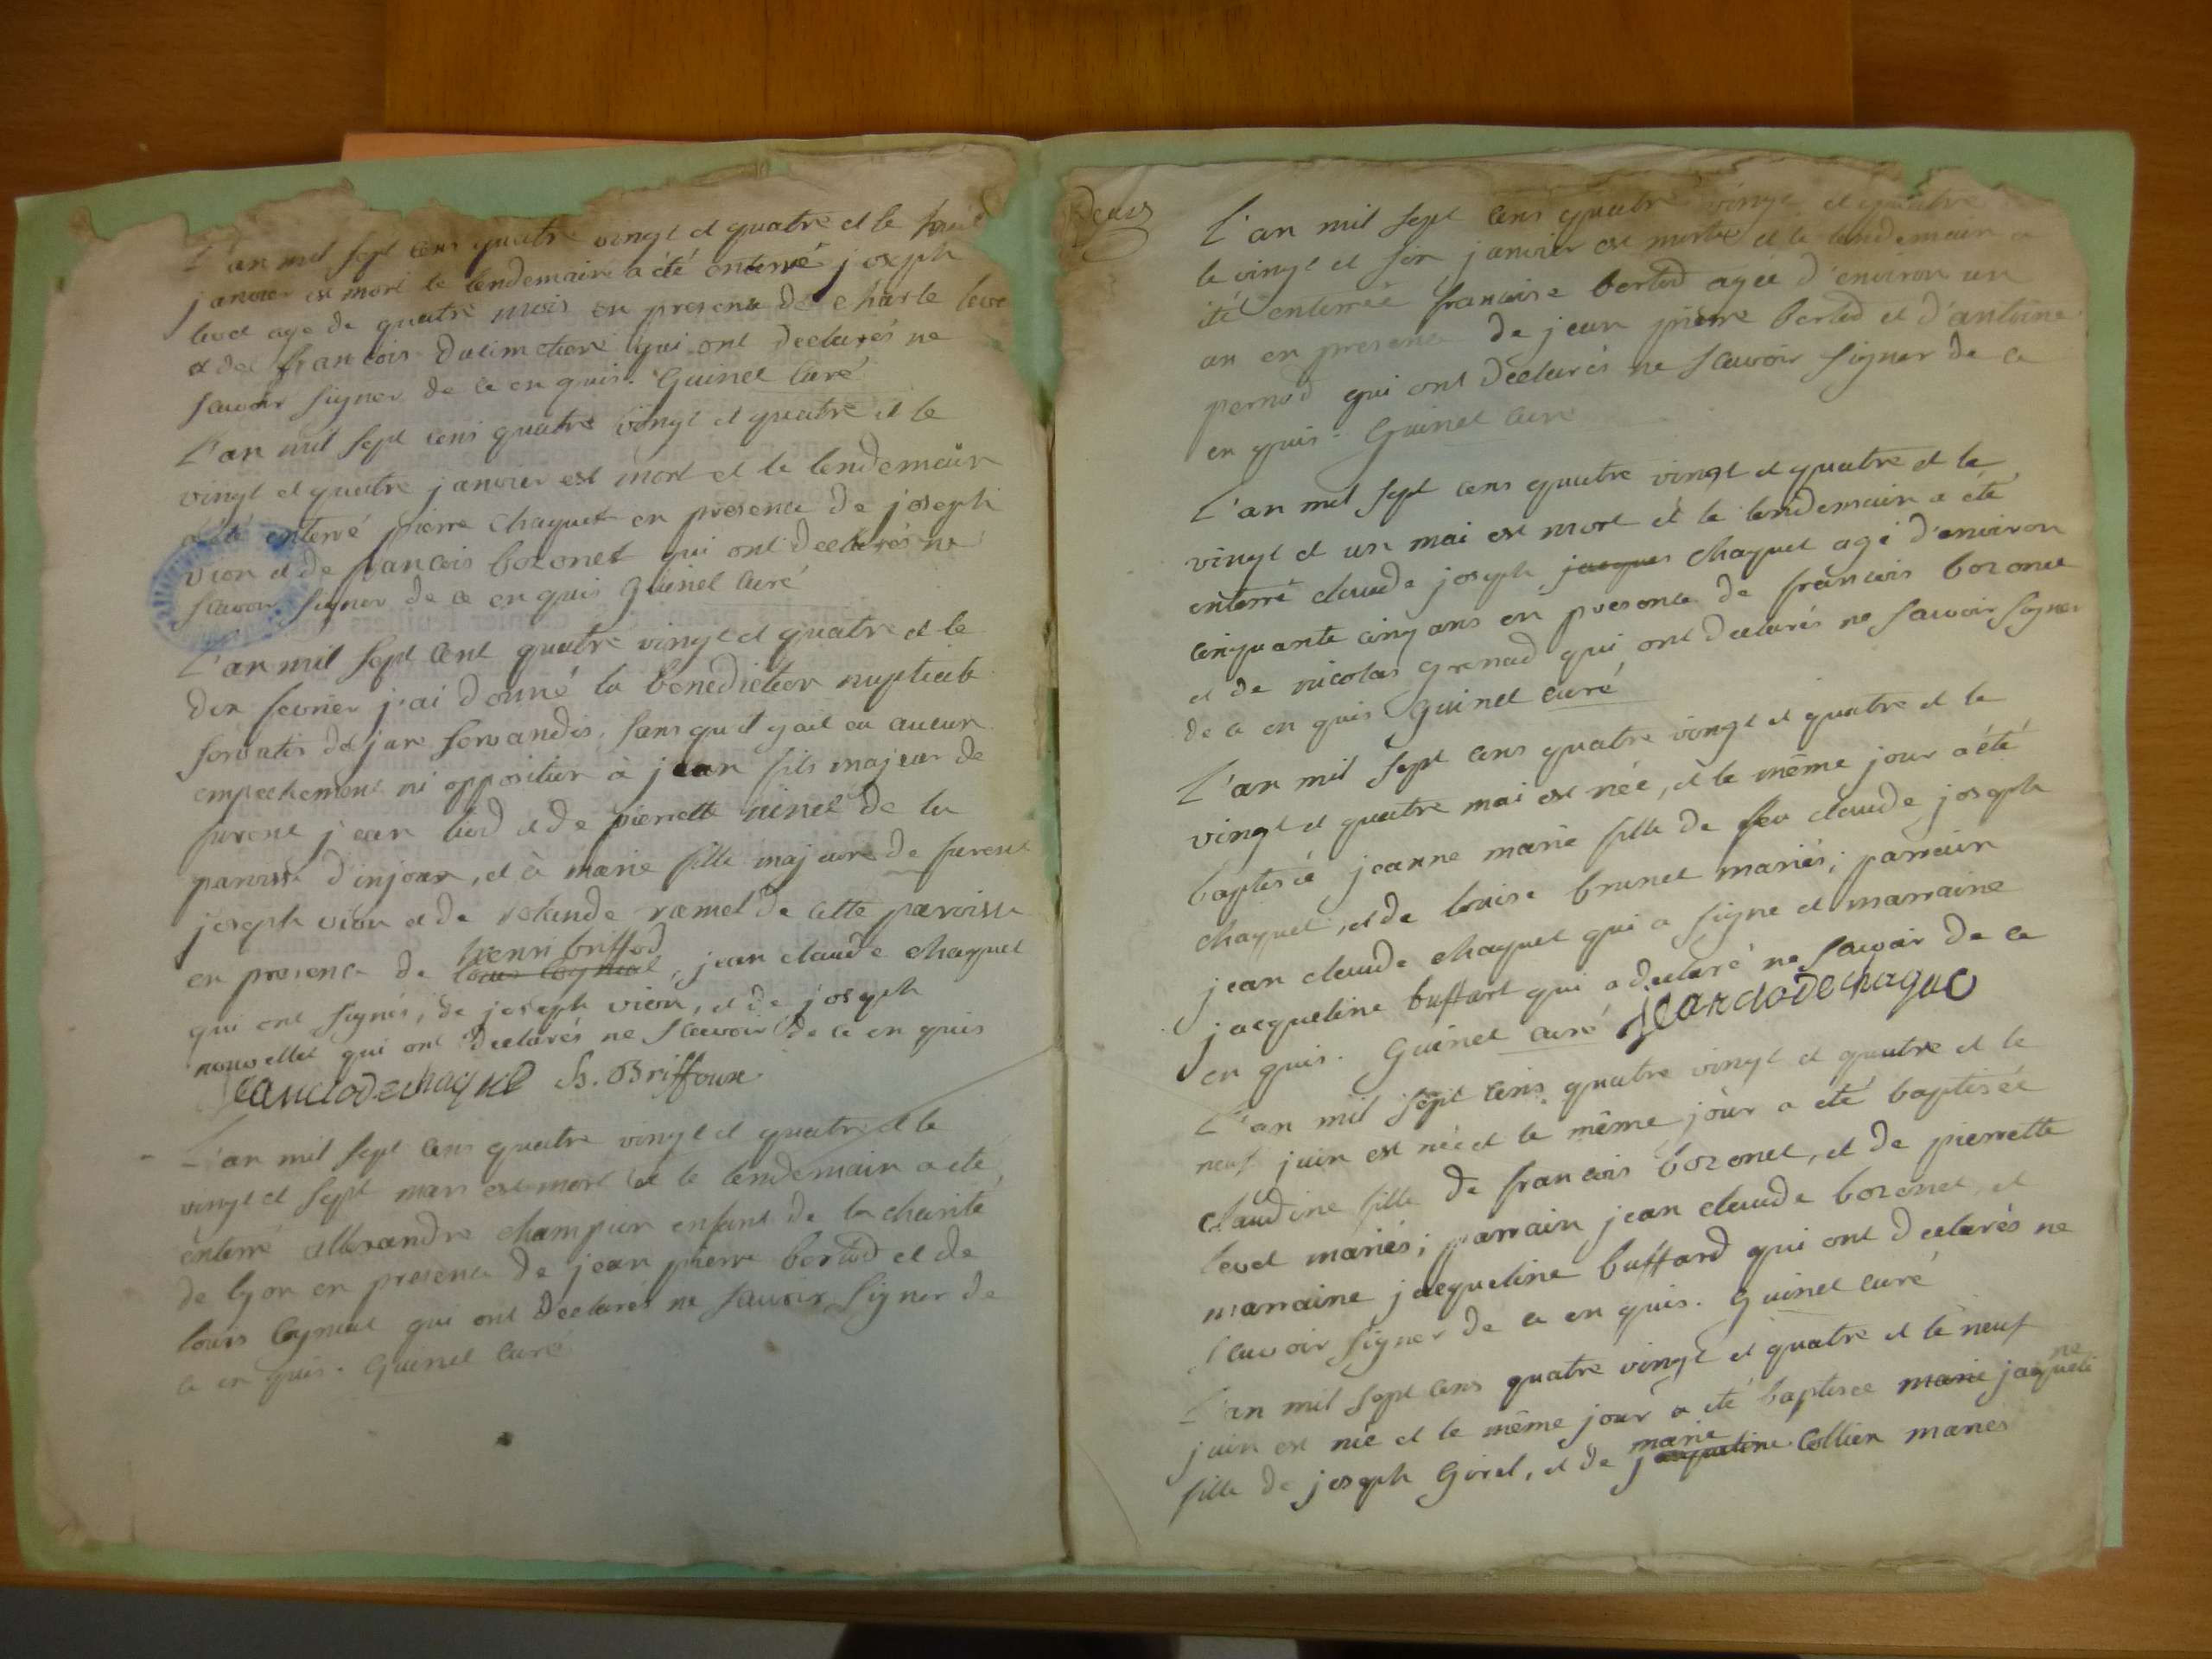 L'an mil sept cens quatre vingt et quatre et le huit
janvier est mort le lendemain a été enterré joseph
levet agé de quatre mois en presence de charle levet
et de francois qui ont declarés ne
scavoir signer de ce enquis. Guinet curé
L'an mil sept cens quatre vingt et quatre et le
vingt et quatre janvier est mort et le lendemain
a été enterré pierre chaquet en presence de joseph
vion et de francois bozonet qui ont declarés ne
scavoir signer de ce enquis Guinet curé
L'an mil sept cent quatre vingt et quatre et le
dix fevrier j'ai donné la benediction nuptiale
servatis de jure servandis, sans qu'il y ait eu aucun
empechement ni opposition à jean fils majeur de
furent jean et de pierrette ninet de la
paroisse d'injoux, et à marie fille majeure de furent
joseph vion et de rolande ramel de cette paroisse
henri briffod
en presence de louis cognat, jean claude chaquet
qui ont signés, de joseph vion, et de joseph
nouvellet qui ont declarés ne scavoir de ce en quis
Jeanclodechaque h. Briffoux
L'an mil sept cens quatre vingt et quatre et le
vingt et sept mars est mort et le lendemain a été
enterré allexandre champion enfant de la charité
de lyon en presence de jean pierre bertod et de
louis cognat qui ont declarés ne scavoir signer de
ce en quis. Guinet curé
Deux
L'an mil sept cens quatre vingt et quatre
le vingt et six janvier est morte et le lendemain a
été enterrée francoise bertod agée d'environ un
an en presence de jean pierre bertod et d'antoine
pernod qui ont declarés ne scavoir signer de ce
en quis. Guinet curé
L'an mil sept cens quatre vingt et quatre et le
vingt et un mai est mort et le lendemain a été
enterré claude joseph jacques chaquet agé d'environ
cinquante cinq ans en presence de francois bozonet
et de nicolas grenad qui ont declarés ne scavoir signer
de ce en quis Guinet curé
L'an mil sept cens quatre vingt et quatre et le
vingt et quatre mai est née, et le même jour a été
baptisée jeanne marie fille de feu claude joseph
chaquet, et de louise brunet mariés; parrain
jean claude chaquet qui a signé et marraine
jacqueline buffart qui a declaré ne scavoir de ce
en quis. Guinet curé Jeanclodechaque
L'an mil sept cens quatre vingt et quatre et le
neuf juin est née et le même jour a été baptisée
claudine fille de francois bozonet, et de pierrette
levet mariés; parrain jean claude bozonet et
marraine jacqueline buffard qui ont declarés ne
scavoir signer de ce en quis. Guinet curé
L'an mil sept cens quatre vingt et quatre et le neuf
juin est née et le même jour a été baptisée marie jaqueline
marie
fille de joseph Girel, et de jacqueline collier mariés